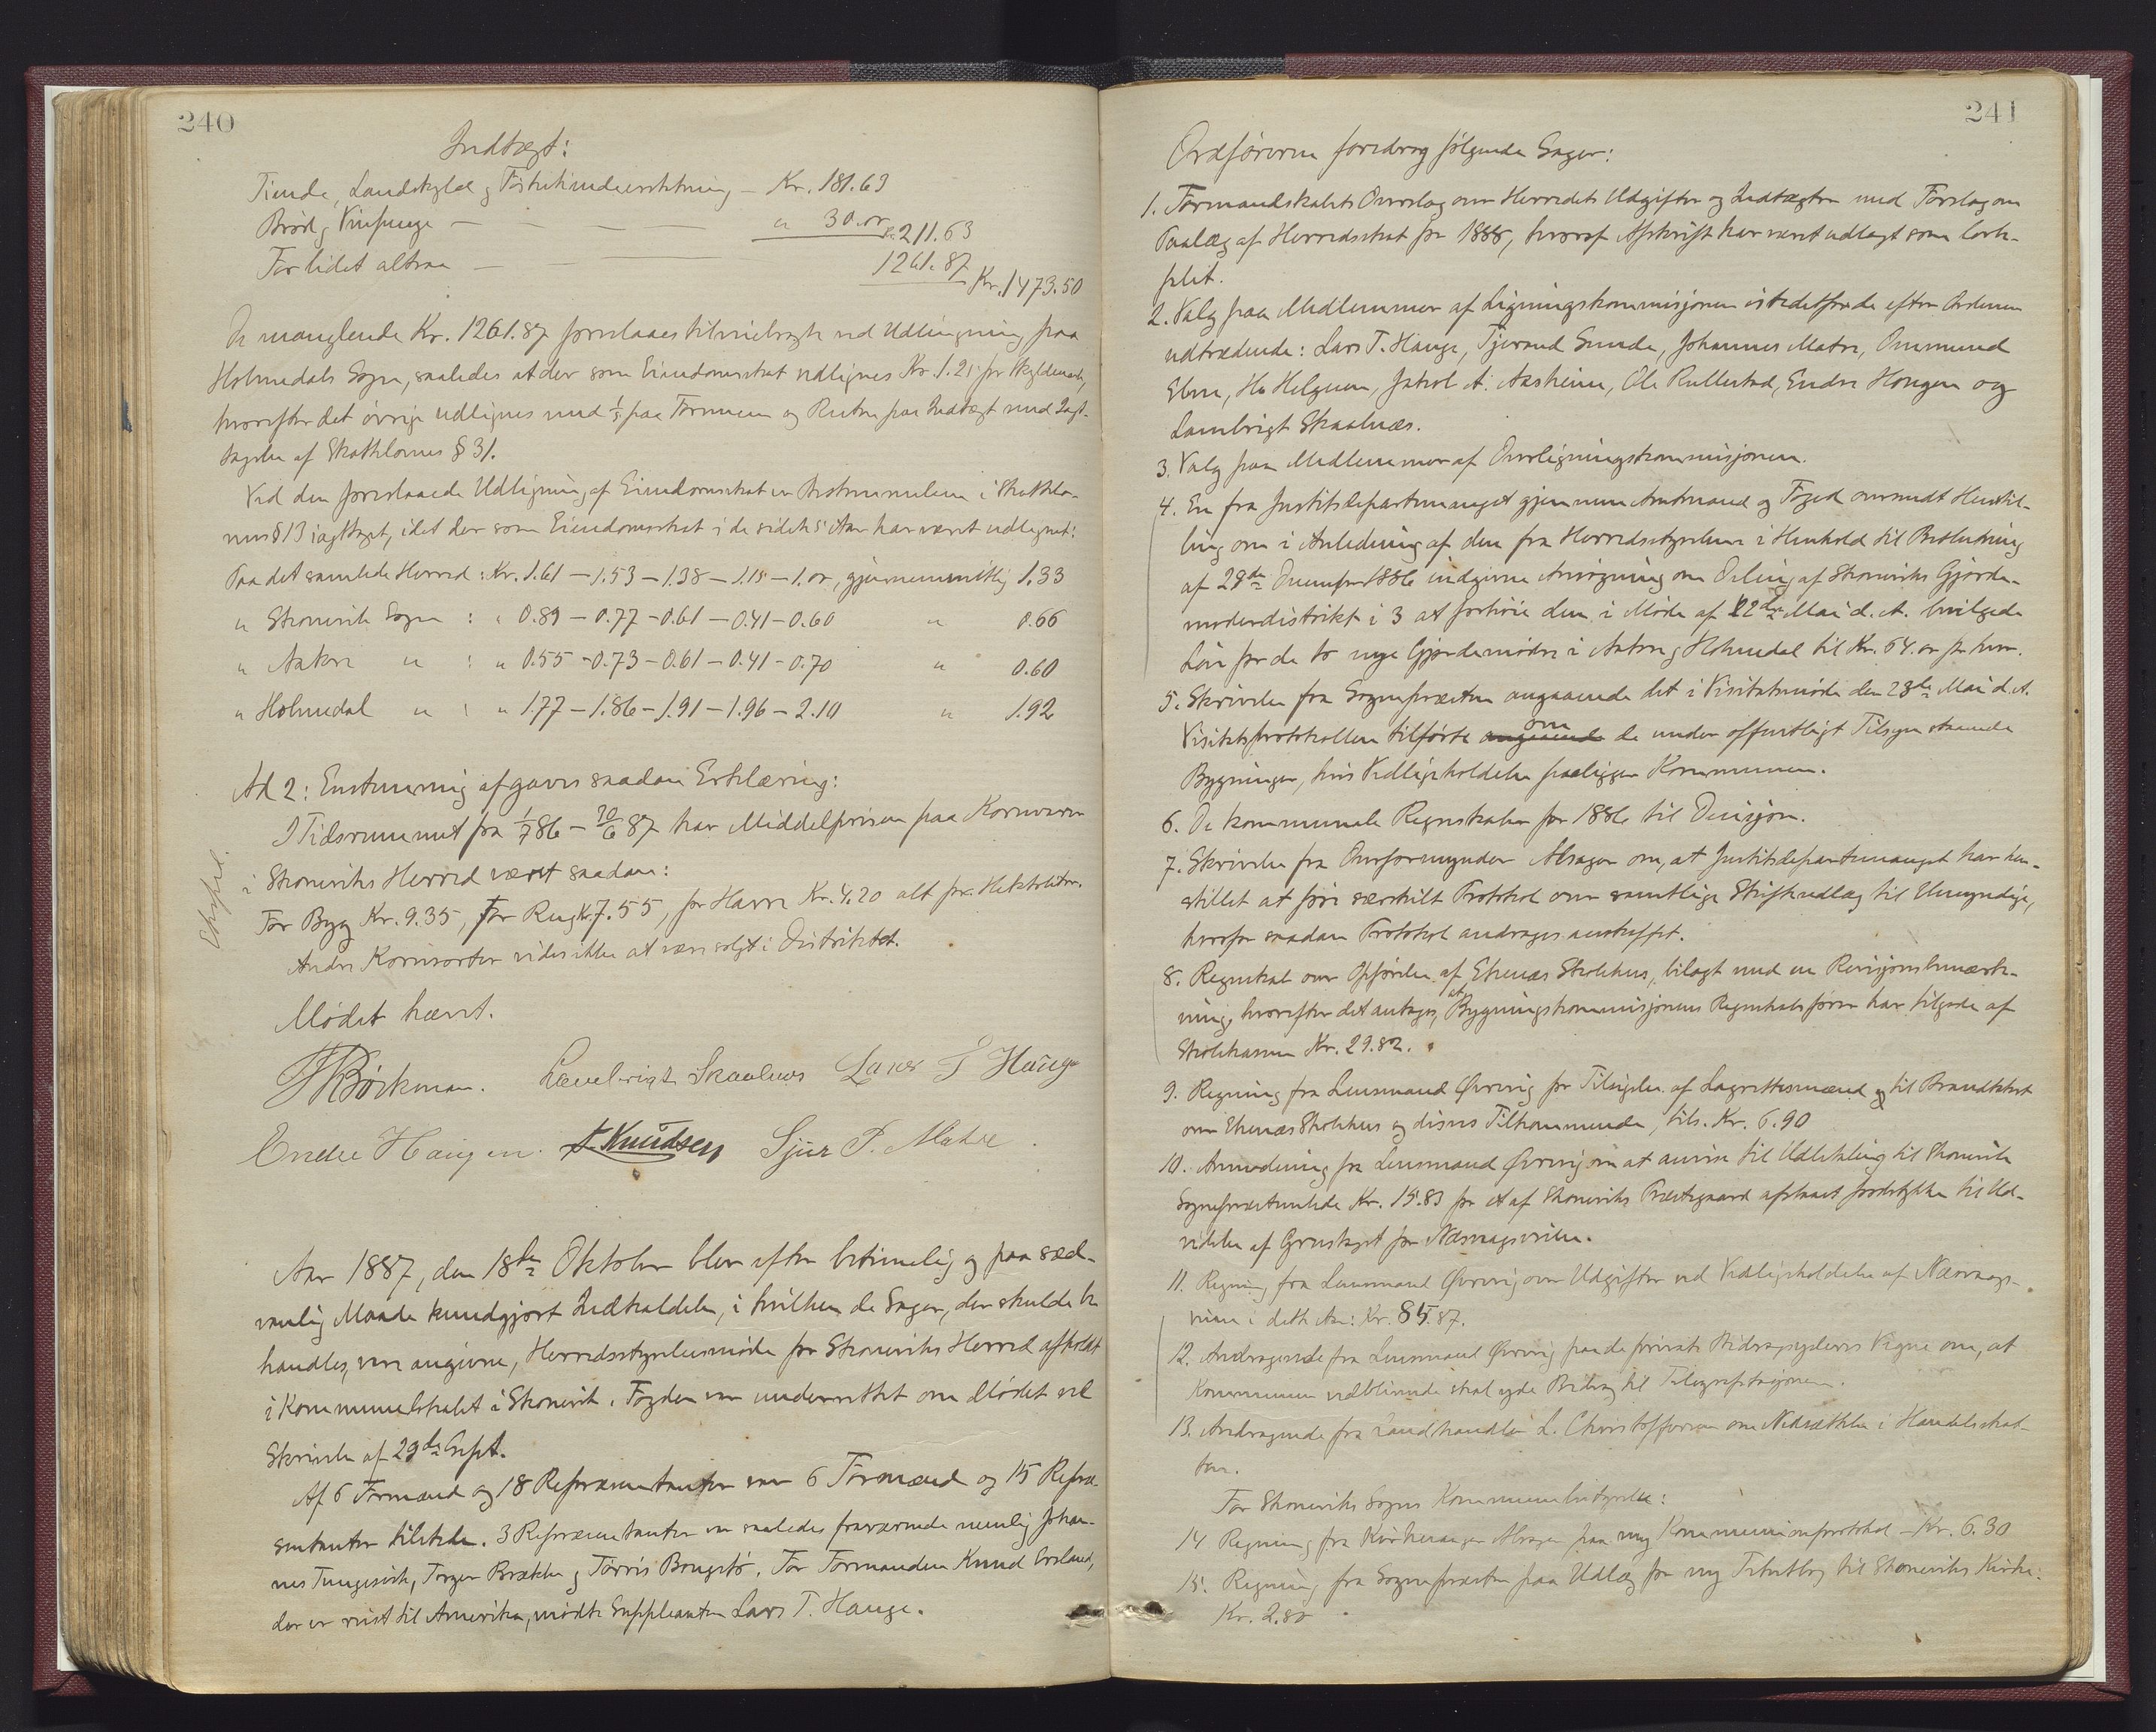 240
Indtægt:
Tiende, Landskyld og Festetiendeerstatning - Kr. 181.63
Brød og Vinpenge - " 30.00 Kr. 211.63
For lidet altsaa - 1261.87
Kr. 1473.50
De manglende Kr. 1261.87 foreslaaes tilveiebragte ved Udligning paa
Holmedals Sogn, saaledes at der som Eiendomsskat udlignes Kr. 1.21 pr Skyldmark,
hvorefter det øvrige udlignes med 1/5 paa Formuen og Resten paa Indtægt med Iagt-
tagelse af Skattelovens § 31.
Ved den foreslaaede Udligning af Eiendomsskat er Bestemmelsen i Skattelo-
vens § 13 iagttaget, idet der som Eiendomsskat i de sidste 5 Aar har været udlignet:
Paa det samlede Herred: Kr. 1.61 - 1.53 - 1.38 - 1.15 - 1.00, gjennemsnitlig 1.33
" Skonevik Sogn : " 0.89 - 0.77 - 0.61 - 0.41 - 0.60 " 0.66
" Aakre " : " 0.55 - 0.73 - 0.61 - 0.41 - 0.70 " 0.60
" Holmedal " : " 1.77 - 1.86 - 1.91 - 1.96 - 2.10 " 1.92
Ad 2: Enstemmig afgaves saadan Erklæring:
I Tidsrummet fra 1/7 86 - 30/6 87 har Middelprisen paa Kornvarer
i Skoneviks Herred været saadan:
For Byg Kr. 9.35, For Rug Kr. 7.55, for Havre Kr. 4.20 alt pr. Hektoliter.
Andre Kornsorter vides ikke at være solgt i Distriktet.
Mødet hævet.
Børkman. Lambrigt Skaalnes Lars T Hauge
Endre Haugen. A. Knudsen Sjur P. Matre.
Aar 1887, den 18de Oktober blev efter betimelig og paa sæd-
vanlig Maade kundgjort Indkaldelse, i hvilken de Sager, der skulde be
handles, vare angivne, Herredsstyrelsesmøde for Skoneviks Herred afholdt
i Kommunelokalet i Skonevik. Fogden var underrettet om Mødet ved
Skrivelse af 29de Sept.
Af 6 Formænd og 18 Repræsentanter var 6 Formænd og 15 Repræ-
sentanter tilstede. 3 Repræsentanter var saaledes fraværende nemlig Johan-
nes Tungesvik, Torger Brække og Tørris Bongstø. For Formanden Knud Ersland,
der er reist til Amerika, mødte Suppleanten Lars T. Hauge.
241
Ordføreren foredrog følgende Sager:
1. Formandskabets Overslag over Herredets Udgifter og Indtægter med Forslag om
Paalæg af Herredsskat for 1888, hvoraf Afskrift har været udlagt som lovbe-
falet.
2. Valg paa Medlemmer af Ligningskommissjonen istedetfor de efter Ordenen
udtrædende: Lars T. Hauge, Tjerand Sunde, Johannes Matre, Ommund
Ebne, Ho Helgesen, Jakob A. Aasheim, Ole Rullestad, Endre Haugen og
Lambrigt Skaalnæs.
3. Valg paa Medlemmer af Overligningskommissjonen.
4. En fra Justitsdepartementet gjennem Amtmand og Foged oversendt Henstil-
ling om i Anledning af den fra Herredsstyrelsen i Henhold til Beslutning
af 28de Decemper 1886 indgivne Ansøgning om Deling af Skoneviks Gjorde-
moderdistrikt i 3 at forhøie den i Møde af 22de Mai d. A. bevilgede
Løn for de to nye Gjordemødre i Aakre og Holmedal til Kr. 64.00 for hver.
5. Skrivelse fra Sognepræsten angaaende det i Visitatsmøde den 23de Mai d. A.
Visitatsprotokollen tilførte om de under offentligt Tilsyn staaende
Bygninger, hvis Vedligeholdelse paaligger Kommunen.
6. De kommunale Regnskaber for 1886 til Decisjon.
7. Skrivelse fra Overformynder Alsager om, at Justitsdepartementet har hen-
stillet at føre særskilt Protokol over samtlige Skifteudlæg til Umyndige,
hvorfor saadan Protokol andrages anskaffet.
8. Regnskab over Opførelse af Etenæs Skolehus, bilagt med en Revisjonsbemærk-
ning, hvorefter det antages, at Bygningskommissjonens Regnskabsfører har tilgode af
Skolekassen Kr. 29.82.
9. Regning fra Lensmand Øvrevig for Tilsigelse af Lagrettesmænd og til Brandtakst
over Etenæs Skolehus og disses Tilkommende, tils. Kr. 6.90
10. Anmodning fra Lensmand Øvrevig om at anvise til Udbetaling til Skonevik
Sognepræstembede Kr. 15.83 for et af Skoneviks Præstegaard afstaaet Jordstykke til Ud-
videlse af Grustaget for Næsvagsveien.
11. Regning fra Lensmand Øvrevig over Udgifter ved Vedligeholdelse af Næsvags-
veien i dette Aar: Kr. 85.87.
12. Andragende fra Lensmand Øvrevig paa de private Bidragsyderes Vegne om, at
Kommunen vedblivende skal yde Bidrag til Telegrafstasjonen.
13. Andragende fra Landhandler L. Christoffersen om Nedsættelse i Handelsskat-
ten.
For Skoneviks Sogns Kommunebestyrelse:
14 Regning fra Kirkesanger Alsager paa ny Kommunionprotokol - Kr. 6.30
15. Regning fra Sognepræsten paa Udlæg for ny Textbog til Skoneviks Kirke.
Kr. 2.80